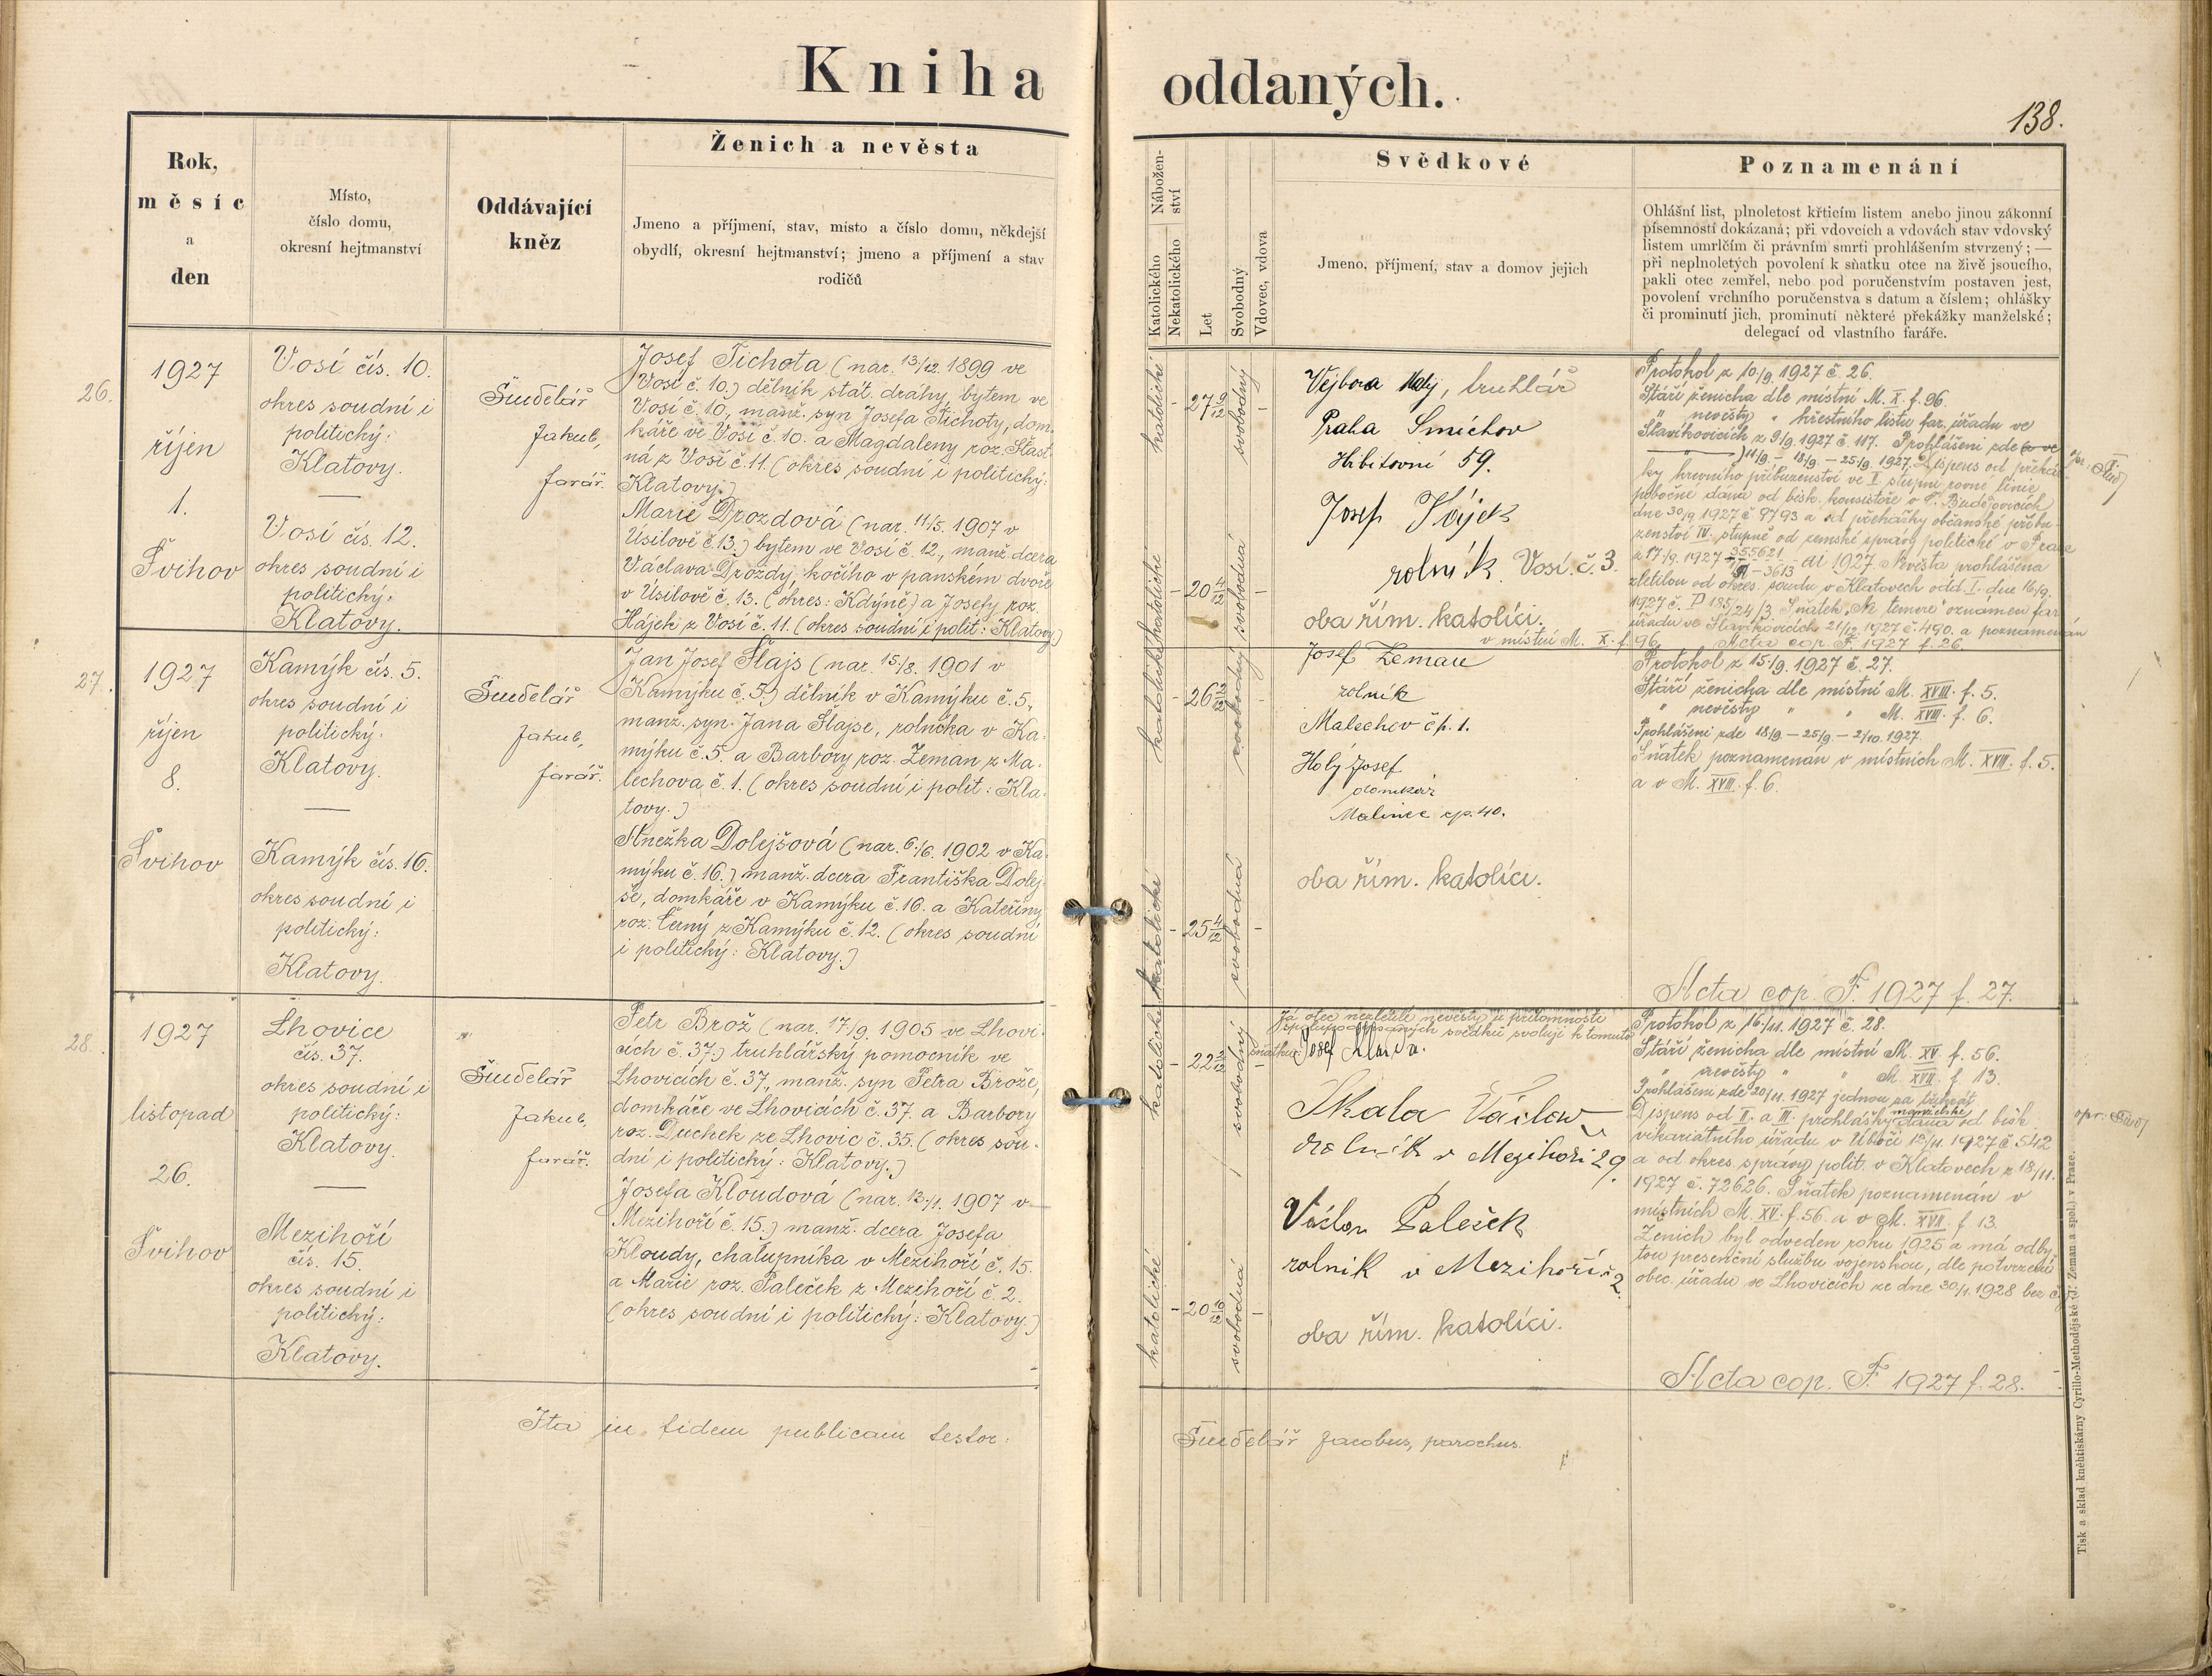 Kniha oddaných.
138.
Rok,
měsíc
a
den
Místo,
číslo domu,
okresní hejtmanství
Oddávající
kněz
Ženich a nevěsta
Jmeno a příjmení, stav, místo a číslo domu, někdejší
obydlí, okresní hejtmanství; jmeno a příjmení a stav
rodičů
Nábožen-
ství
Katolického
Nekatolického
Let
Svobodný
Vdovec, vdova
Svědkové
Jmeno, příjmení, stav a domov jejich
Poznamenání
Ohlášní list, plnoletost křticím listem anebo jinou zákonní
písemností dokázaná; při vdovcích a vdovách stav vdovský
listem umrlčím či právním smrti prohlášením stvrzený; —
při neplnoletých povolení k sňatku otce na živě jsoucího,
pakli otec zemřel, nebo pod poručenstvím postaven jest,
povolení vrchního poručenstva s datum a číslem; ohlášky
či prominutí jich, prominutí některé překážky manželské;
delegací od vlastního faráře.
26.
1927
říjen
1.
Švihov
Vosí čís. 10.
okres soudní i
politický:
Klatovy.
Vosí čís. 12.
okres soudní i
politický:
Klatovy.
Šindelář
Jakub,
farář.
Josef Tichota (nar. 13./12. 1899 ve
Vosí č. 10.) dělník stát. dráhy, bytem ve
Vosí č. 10., manž. syn Josefa Tichoty, dom-
káře ve Vosí č. 10. a Magdaleny roz. Šťast-
ná z Vosí č. 11. (okres soudní i politický:
Klatovy.)
Marie Drozdová (nar. 11/5. 1907 v
Úsilově č. 13.) bytem ve Vosí č. 12., manž. dcera
Václava Drozdy, kočího v panském dvoře
v Úsilově č. 13. (okres: Kdýně) a Josefy roz.
Hájek z Vosí č. 11. (okres soudní i polit: Klatovy)
katolické - 27 9/12 svobodný -
katolické - 20 4/12 svobodná -
Vejbora, truhlář
Praha Smíchov
59.
Josef Hájek
rolník Vosí. č. 3.
oba řím. katolíci.
Protokol z 10/9. 1927 č. 26.
Stáří ženicha dle místní M. X. f. 96.
" nevěsty " křestního listu far. úřadu ve
Slavíkovicích z 9/9. 1927 č. 117. Prohlášeni zde
11/9. – 18/9. – 25/9. 1927. Dispens od překáž-
ky krevního příbuzenství ve I. stupni rovné linie
pobočné dána od bisk. konsistoře v Č. Budějovicích
dne 30/9 1927 č 9793 a od překážky občanské příbu-
zenství IV. stupně od zemské správy politické v Praze
z 17./9. 1927 355621 – 3613 ai 1927. Nevěsta prohlášena
zletilou od okres. soudu v Klatovech odd. I. dne 16/9.
1927 č. P 185/24/3. Sňatek „Ne temere" oznámen far.
úřadu ve Slavíkovicích 21/12. 1927 č. 490. a poznamenán
v místní M. X. f. 96. Acta cop. F. 1927 f. 26.
27.
1927
říjen
8.
Švihov
Kamýk čís. 5.
okres soudní i
politický.
Klatovy.
Kamýk čís. 16.
okres soudní i
politický:
Klatovy.
Šindelář
Jakub,
farář.
Jan Josef Šlajs (nar. 15./8. 1901 v
Kamýku č. 5.) dělník v Kamýku č. 5.,
manž. syn Jana Šlajse, rolníka v Ka-
mýku č. 5. a Barbory roz. Zeman z Ma-
lechova č. 1. (okres soudní i polit: Kla-
tovy.)
Anežka Dolejšová (nar. 6./6. 1902 v Ka-
mýku č. 16.) manž. dcera Františka Dolej-
še, domkáře v Kamýku č. 16. a Kateřiny
roz. Černý z Kamýku č. 12. (okres soudní
i politický: Klatovy.)
katolické - 26 2/12 svobodný -
katolické - 25 4/12 svobodná -
Josef Zeman
rolník
Malechov čp. 1.
Holý Josef
domkář
Malinec čp. 40.
oba řím. katolíci.
Protokol z 15/9. 1927 č. 27.
Stáří ženicha dle místní M. XVIII. f. 5.
" nevěsty " " M. XVIII. f. 6.
Prohlášeni zde 18/9 – 25/9 – 2/10. 1927.
Sňatek poznamenán v místních M. XVIII. f. 5.
a v M. XVIII. f. 6.
Acta cop. F. 1927 f. 27.
28.
1927
listopad
26.
Švihov
Lhovice
čís. 37.
okres soudní i
politický:
Klatovy.
Mezihoří
čís. 15.
okres soudní i
politický:
Klatovy.
Šindelář
Jakub,
farář.
Petr Brož (nar. 17./9. 1905 ve Lhovi-
cích č. 37.) truhlářský pomocník ve
Lhovicích č. 37., manž. syn Petra Brože,
domkáře ve Lhovicích č. 37. a Barbory
roz. Duchek ze Lhovic č. 35. (okres sou-
dní i politický: Klatovy.)
Josefa Kloudová (nar. 13./1. 1907 v
Mezihoří č. 15.) manž. dcera Josefa
Kloudy, chalupníka v Mezihoří č. 15.
a Marie roz. Paleček z Mezihoří č. 2.
(okres soudní i politický: Klatovy.)
katolické - 22 2/12 svobodný -
katolické - 20 10/12 svobodná -
Já otec nezletilé nevěsty u přítomnosti
spolupodepsaných svědků svoluji k tomuto
sňatku: Josef Klouda.
Skala Václav
rolník v Mezihoří 29.
Václav Paleček
rolník v Mezihoří č 2.
oba řím. katolíci.
Protokol z 16/11. 1927 č. 28.
Stáří ženicha dle místní M. XV. f. 56.
" nevěsty " " M. XVII. f. 13.
Prohlášeni zde 20/11. 1927 jednou za třikrát
Dispens od II. a III. prohlášky manželské dána od bisk.
vikariátního úřadu v Úboči 12/11. 1927 č 542
a od okres. správy polit. v Klatovech z 18/11.
1927 č. 72626. Sňatek poznamenán v
místních M. XV. f. 56. a v M. XVII. f. 13.
Ženich byl odveden roku 1925 a má odby-
tou presenční službu vojenskou, dle potvrzení
obec. úřadu ve Lhovicích ze dne 30/1. 1928 bez č.
Acta cop. F. 1927 f. 28.
Ita in fidem publicam testor: Šindelář Jacobus, parochus.
Tisk a sklad knihtiskárny Cyrillo-Methodějské (J. Zeman a spol.) v Praze.